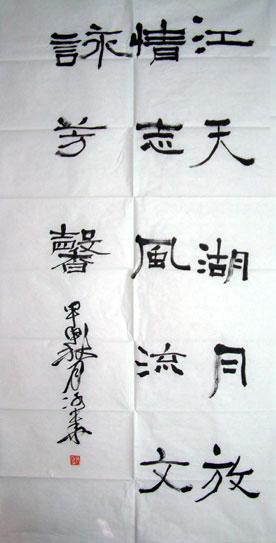 江天湖月放
情志風流文
詠芳馨
甲申秋月